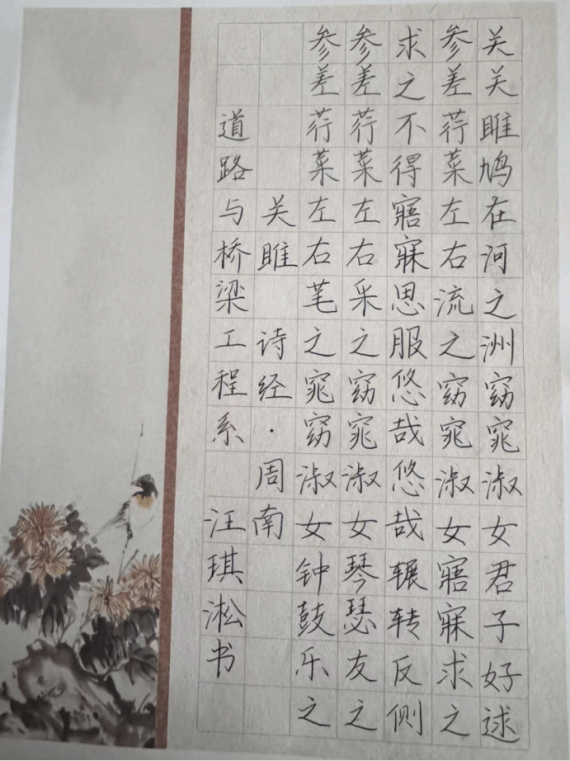 关关雎鸠在河之洲窈窕淑女君子好逑
参差荇菜左右流之窈窕淑女寤寐求之
求之不得寤寐思服悠哉悠哉辗转反侧
参差荇菜左右采之窈窕淑女琴瑟友之
参差荇菜左右芼之窕窈淑女钟鼓乐之
关雎 诗经·周南
道路与桥梁工程系 汪琪淞书